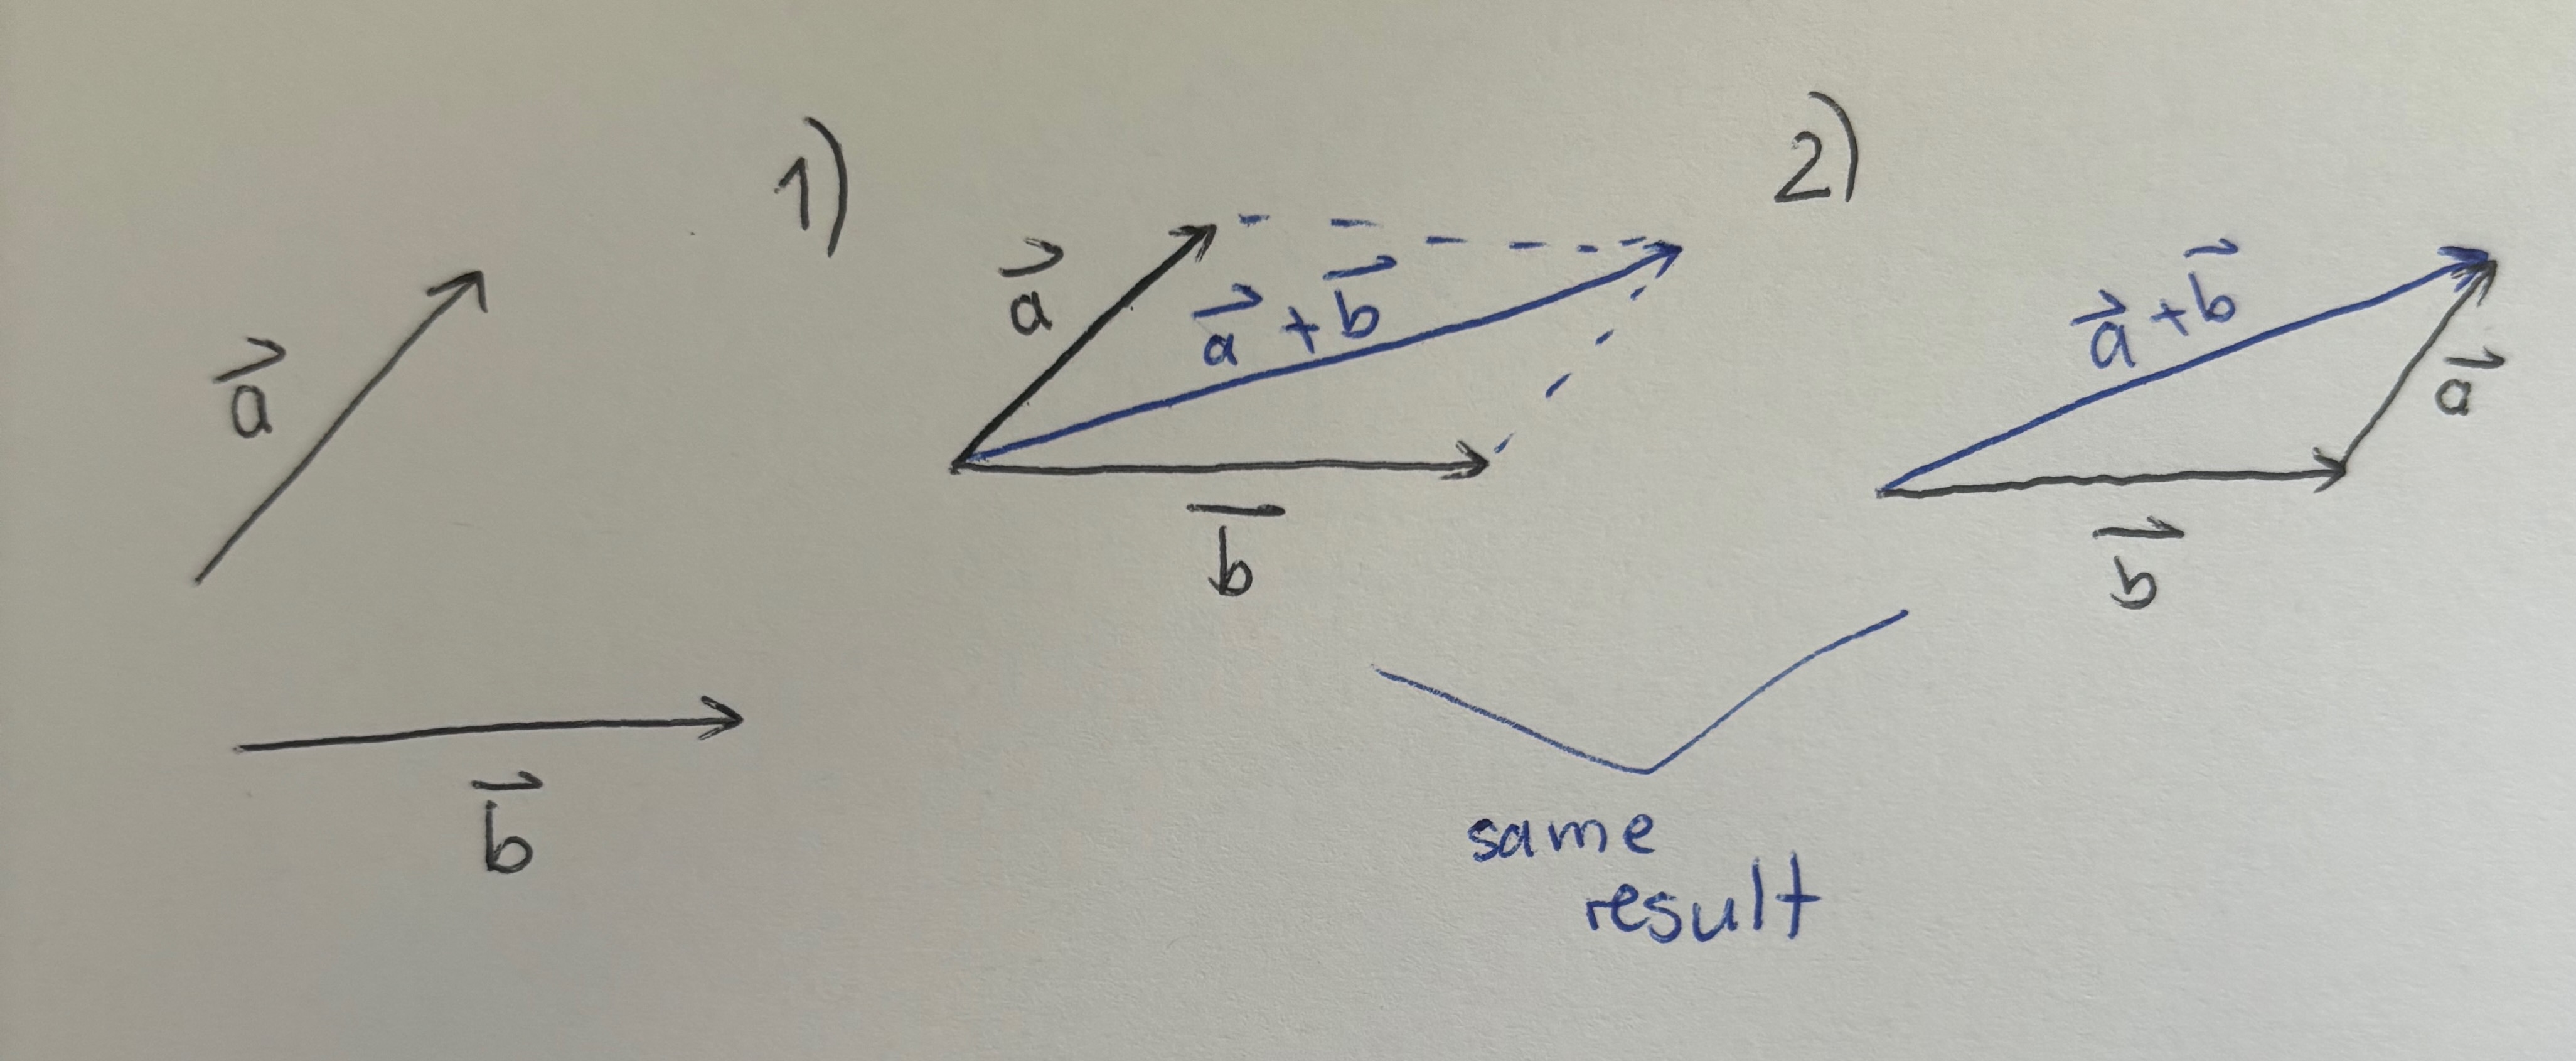 1)
2)
a⃗
b⃗
a⃗
a⃗ + b⃗
b̅
a⃗ + b⃗
a⃗
b⃗
same
result